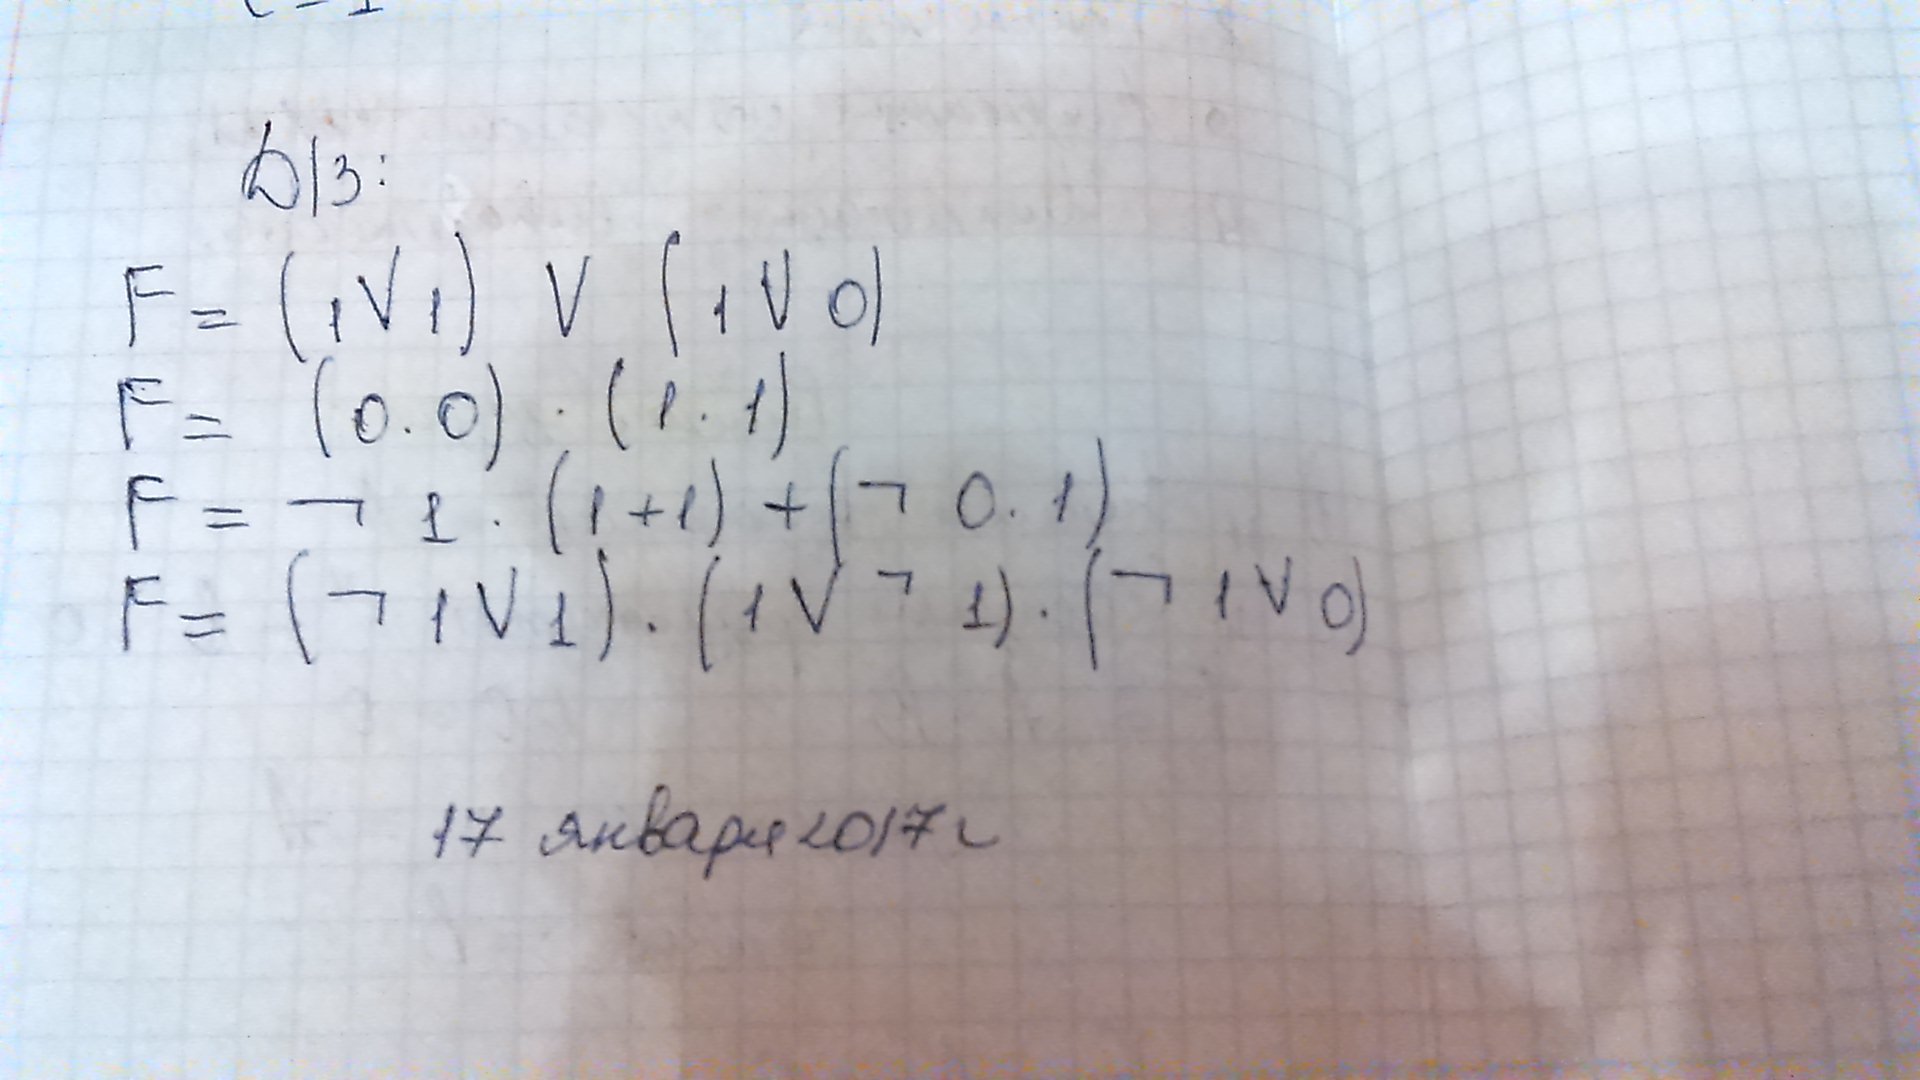 Д/З:
F = (1 V 1) V (1 V 0)
F = (0 . 0) . (1 . 1)
F = ¬ 1 . (1 + 1) + (¬ 0 . 1)
F = (¬ 1 V 1) . (1 V ¬ 1) . (¬ 1 V 0)
17 января 2017 г